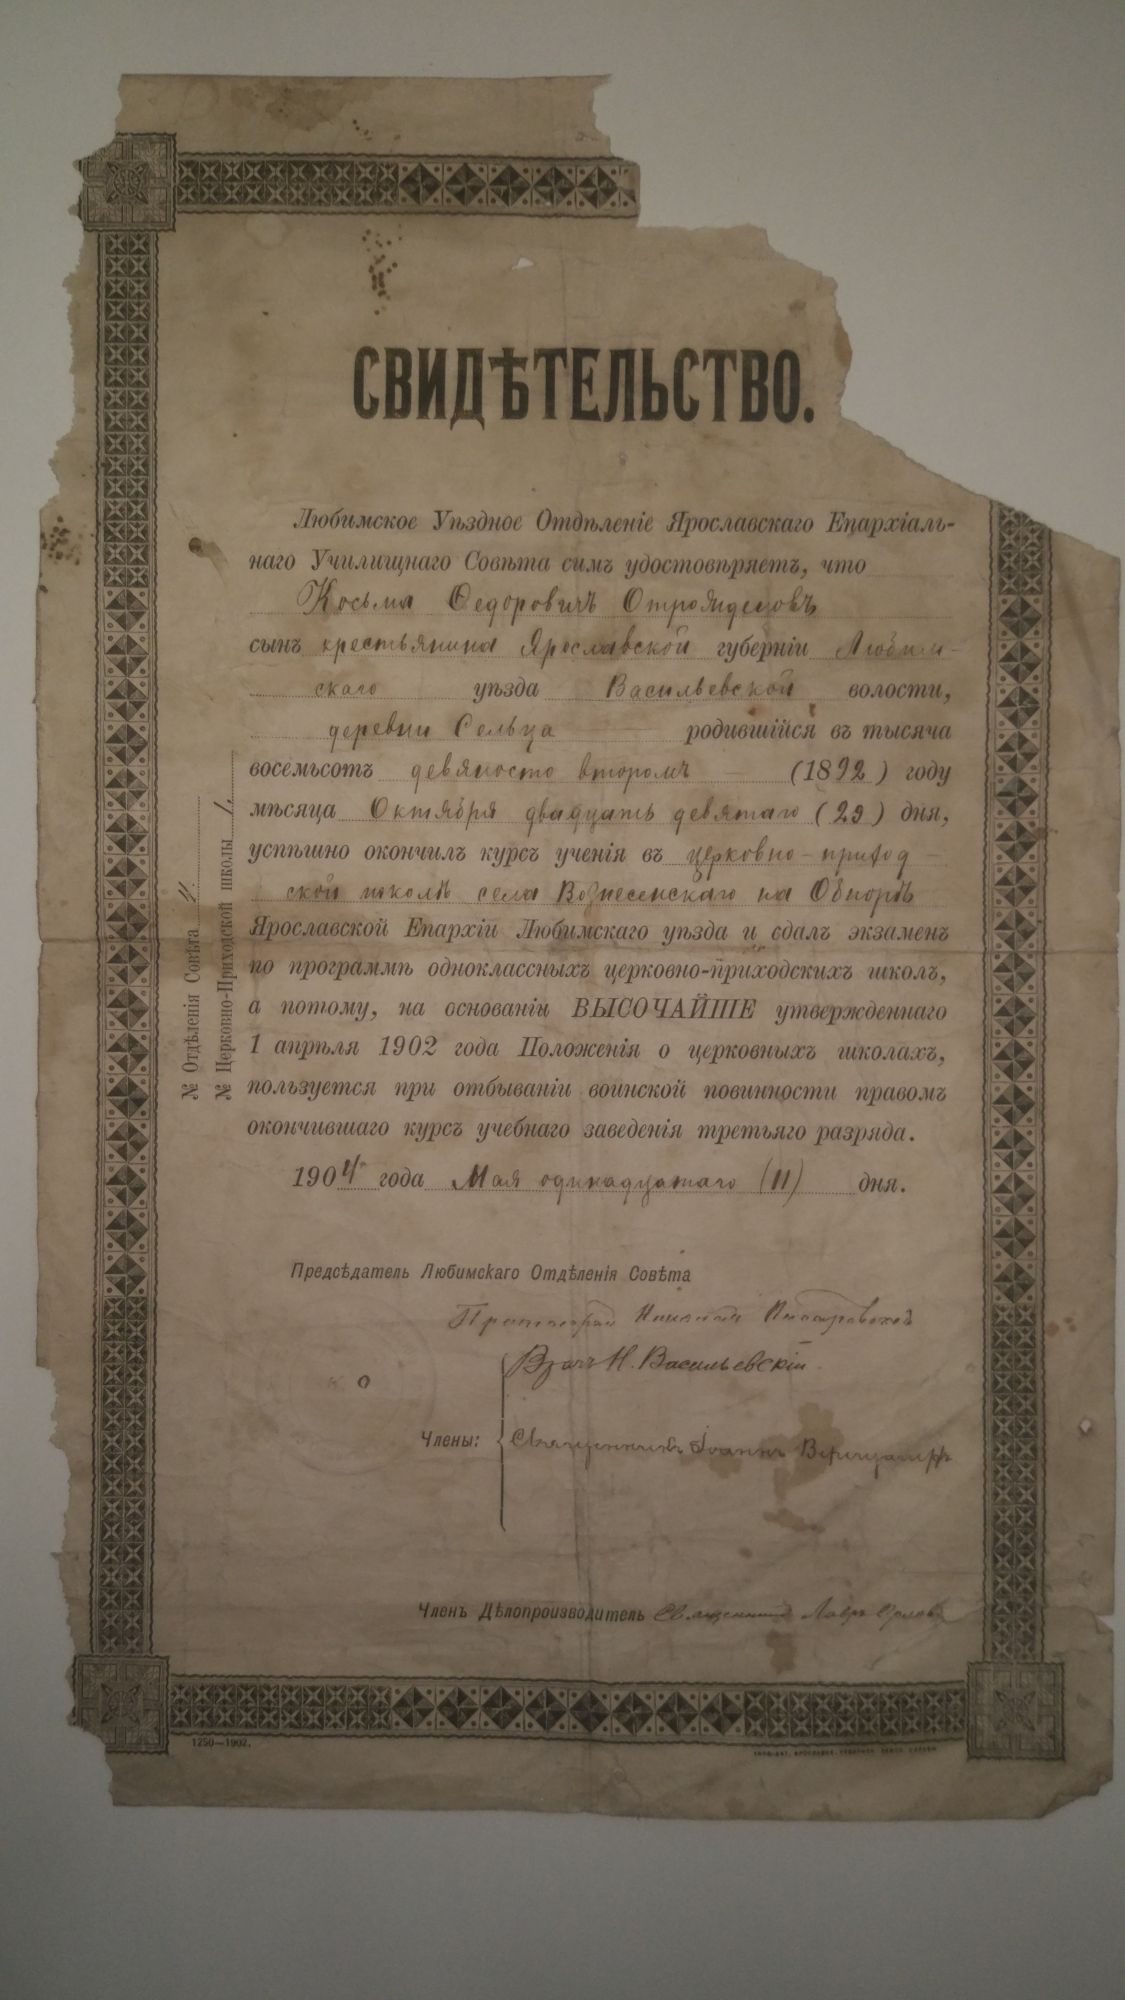 СВИДѢТЕЛЬСТВО.
Любимское Уѣздное Отдѣленіе Ярославскаго Епархіаль-
наго Училищнаго Совѣта симъ удостовѣряетъ, что
Косьма Ѳедоровичъ
сынъ крестьянина Ярославской губерніи Любим-
скаго уѣзда Васильевской волости,
деревни Сельца родившійся въ тысяча
восемьсотъ девяносто второмъ (1892) году
мѣсяца Октября двадцать девятаго (29) дня,
успѣшно окончилъ курсъ ученія въ церковно-приход-
ской школѣ села Вознесенскаго на Обнорѣ
Ярославской Епархіи Любимскаго уѣзда и сдалъ экзаменъ
по программѣ одноклассныхъ церковно-приходскихъ школъ,
а потому, на основаніи ВЫСОЧАЙШЕ утвержденнаго
1 апрѣля 1902 года Положенія о церковныхъ школахъ,
пользуется при отбываніи воинской повинности правомъ
окончившаго курсъ учебнаго заведенія третьяго разряда.
1904 года Мая одинадцатаго (11) дня.
№ Отдѣленія Совѣта 11
№ Церковно-Приходской школы 1.
Предсѣдатель Любимскаго Отдѣленія Совѣта
Протоіерей Николай
Врачъ Н. Васильевскій
Члены: Священникъ Іоаннъ
Членъ Дѣлопроизводитель Священникъ Лавръ Орловъ
1250—1902.